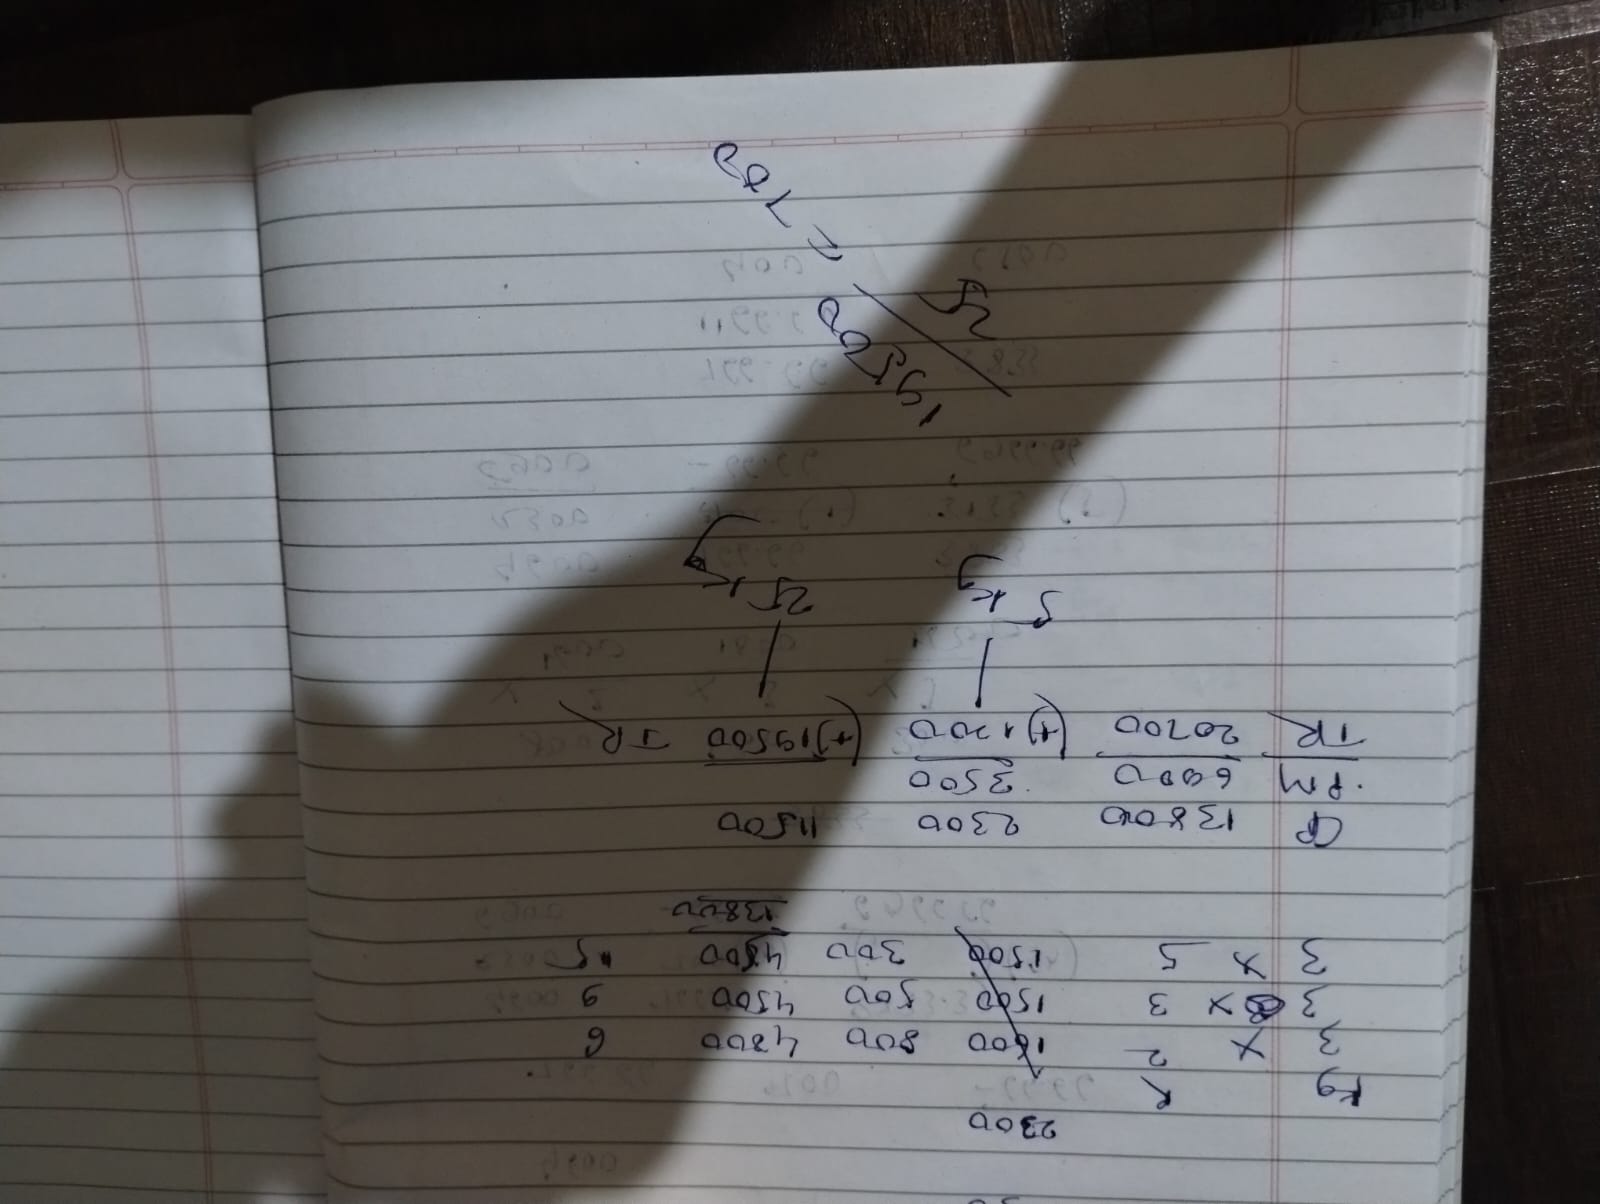 2300
Kg R
3 X 2 1600 800 4800 6
3 X 3 1500 500 4500 9
3 X 5 1500 300 4500 15
13800
CP 13800 2300 11500
PM 6900 3500
TR 20700 (+) 1200 (+) 19500 TR
5 kg 25 kg
19500 / 25 = 780